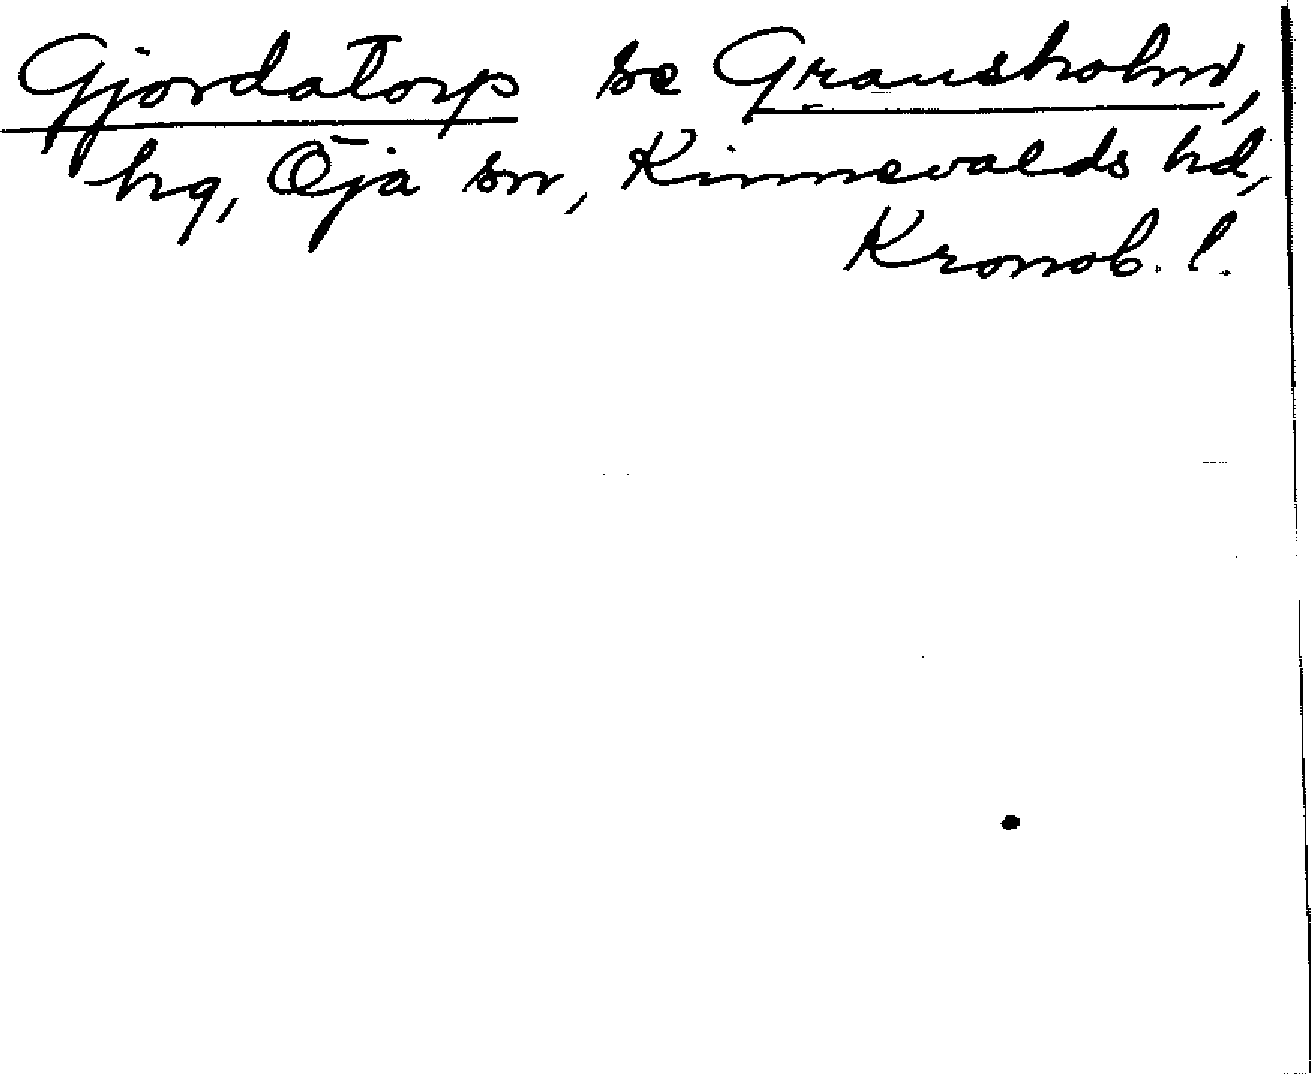 Gjordatorp se Gransholm,
hg, Öja sn, Kinnevalds hd,
Kronob. l.